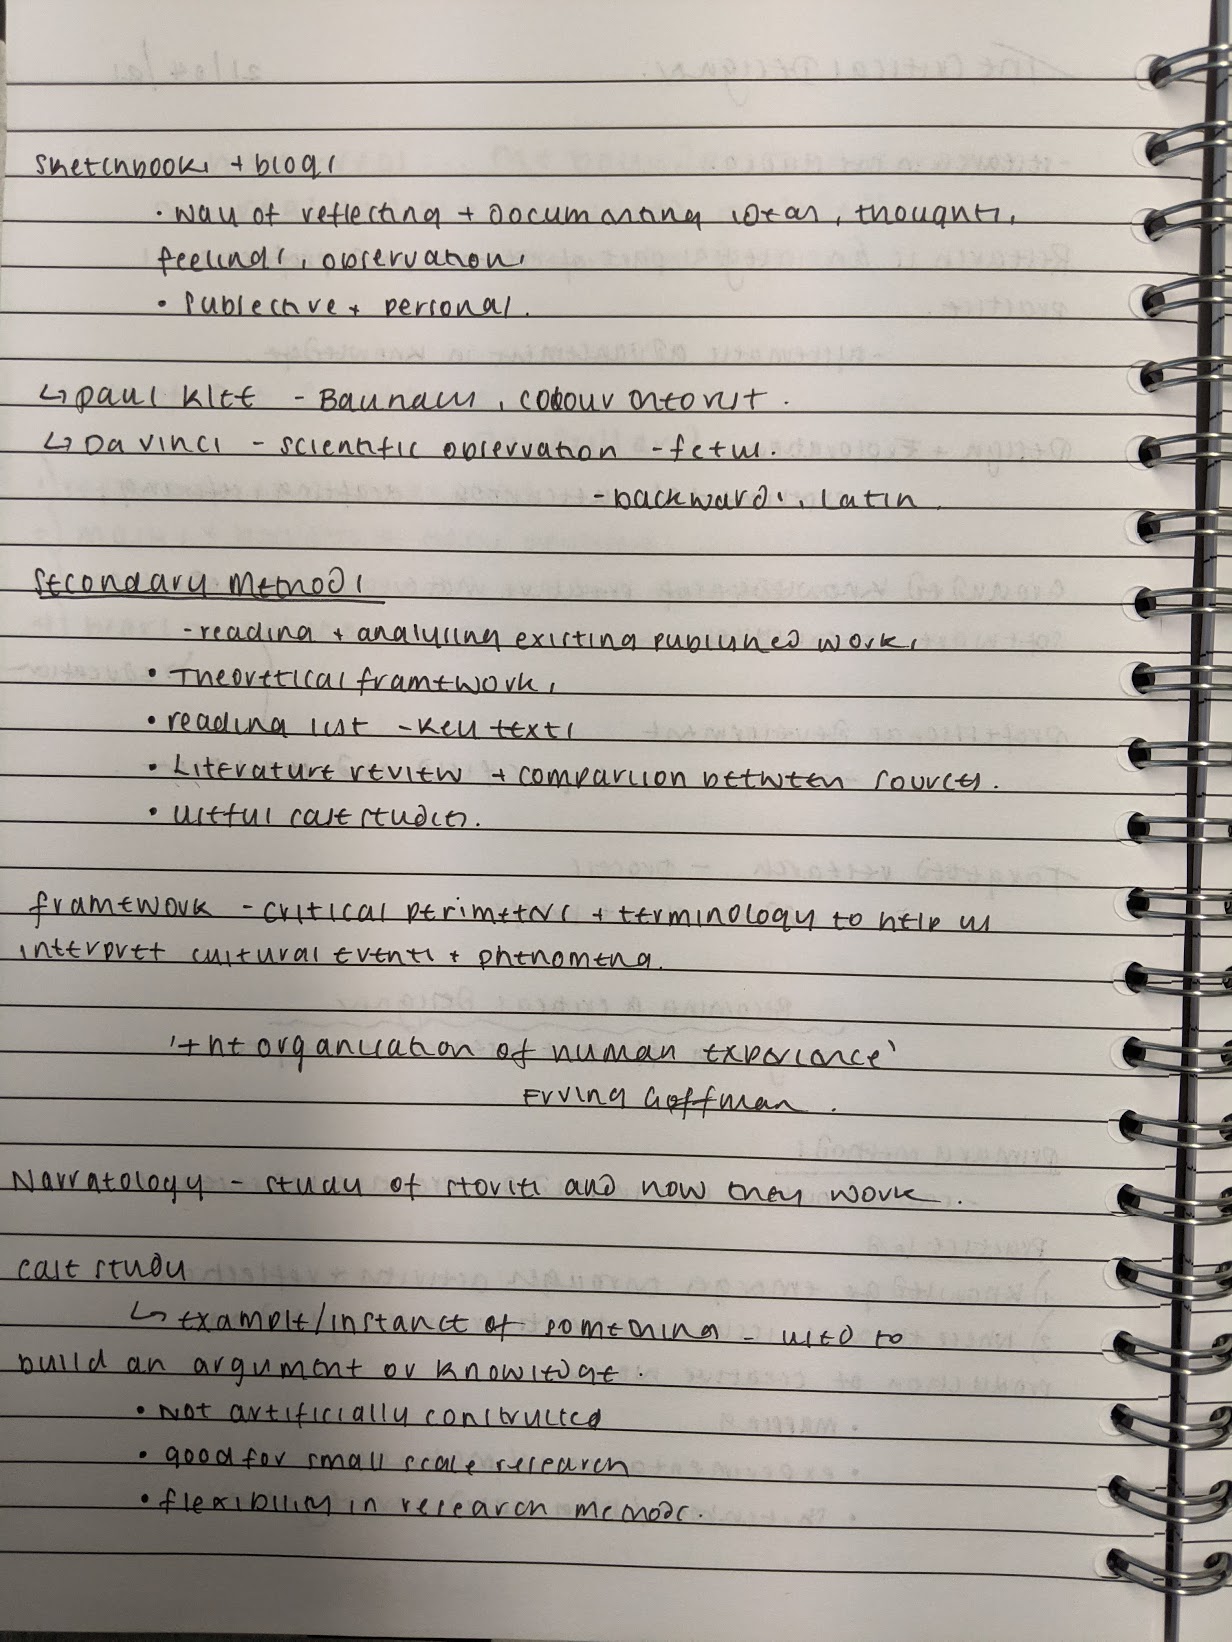 sketchbooks + blogs
• way of reflecting + documenting ideas, thoughts,
feelings, observations
• subjective + personal.
↳ paul klee - Bauhaus, colour interest.
↳ Da vinci - scientific observation - fetus.
- backwards, latin
Secondary methods
- reading + analysing existing published works
• Theoretical frameworks
• reading list - key texts
• Literature review + comparison between sources.
• useful case studies.
framework - critical perimeters + terminology to help us
interpret cultural events + phenomena.
'the organisation of human experience'
Erving Goffman.
Narratology - study of stories and how they work.
case study
↳ example/instance of something - used to
build an argument or knowledge.
• Not artificially constructed
• good for small scale research
• flexibility in research methods.